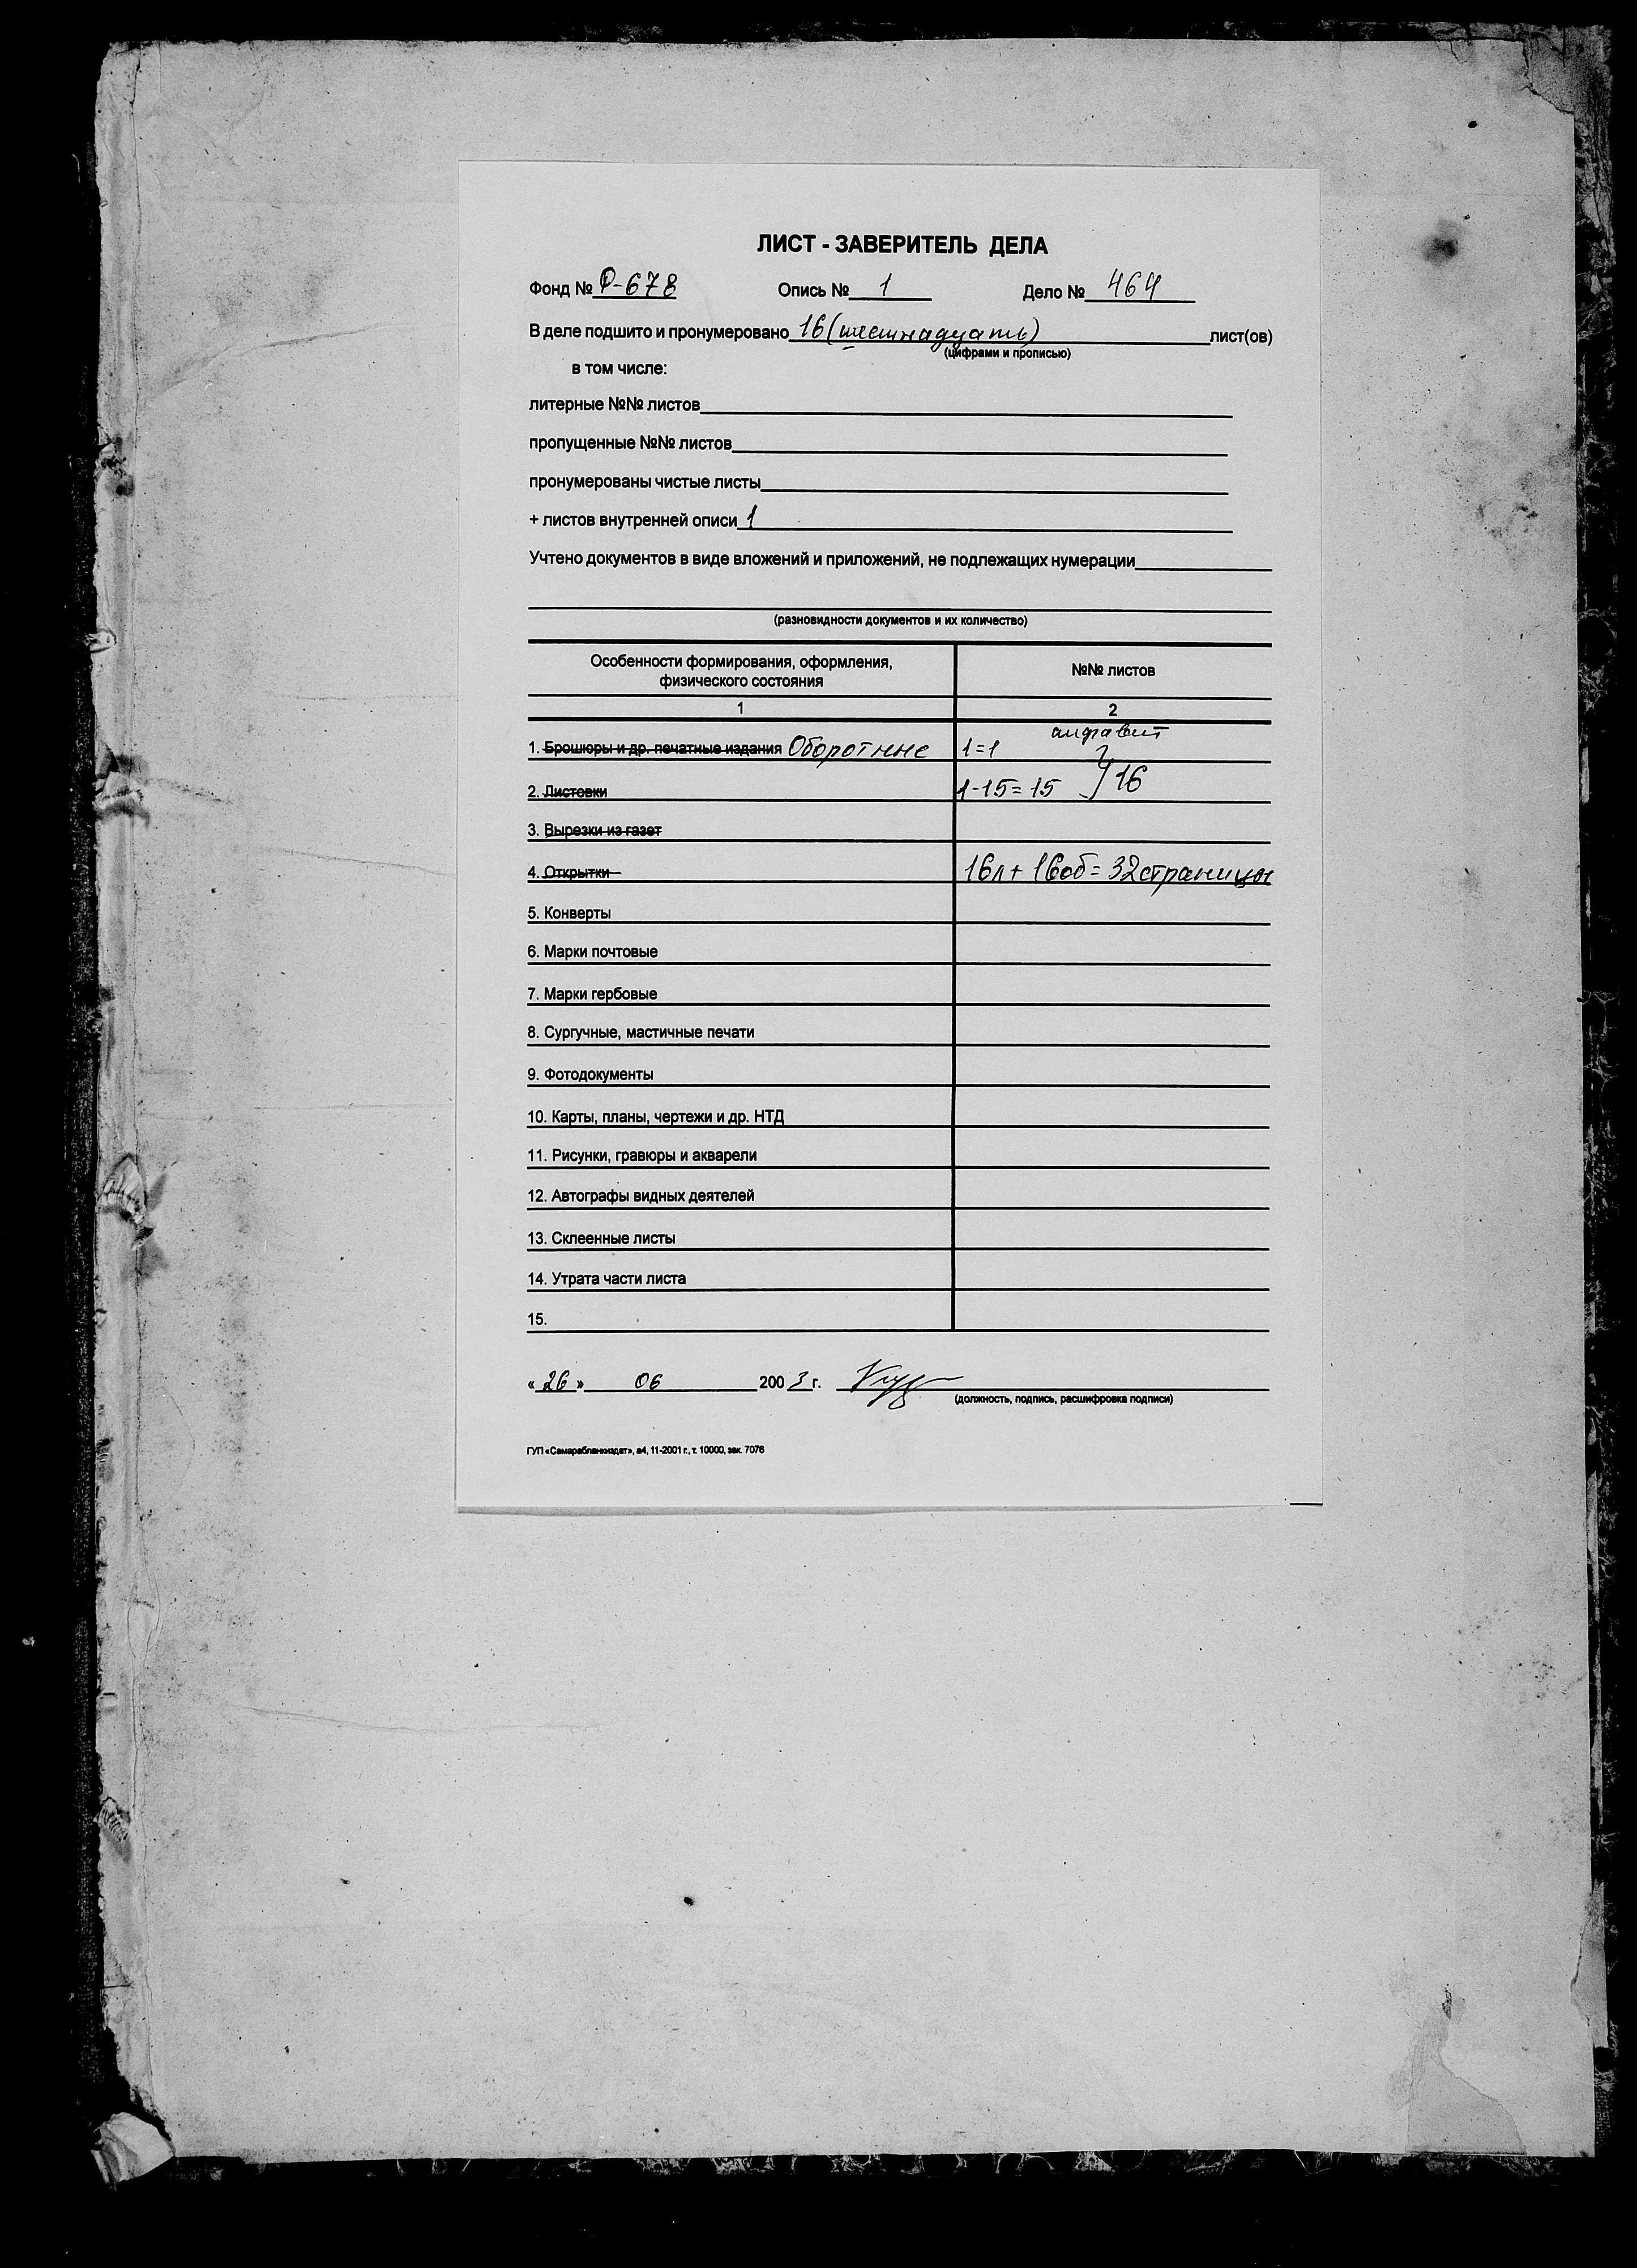 ЛИСТ - ЗАВЕРИТЕЛЬ ДЕЛА
Фонд № Р-678 Опись № 1 Дело № 464
В деле подшито и пронумеровано 16 (шестнадцать) лист(ов)
(цифрами и прописью)
в том числе:
литерные №№ листов
пропущенные №№ листов
пронумерованы чистые листы
+ листов внутренней описи 1
Учтено документов в виде вложений и приложений, не подлежащих нумерации
(разновидности документов и их количество)
Особенности формирования, оформления, №№ листов
физического состояния
1 2
алфавит
1. Брошюры и др. печатные издания Оборотные 1=1
2. Листовки 1-15=15 } 16
3. Вырезки из газет
4. Открытки 16л + 16об = 32 страницы
5. Конверты
6. Марки почтовые
7. Марки гербовые
8. Сургучные, мастичные печати
9. Фотодокументы
10. Карты, планы, чертежи и др. НТД
11. Рисунки, гравюры и акварели
12. Автографы видных деятелей
13. Склеенные листы
14. Утрата части листа
15.
« 26 » 06 2003 г.
(должность, подпись, расшифровка подписи)
ГУП «Самарабланкиздат», а4, 11-2001 г., т. 10000, зак. 7076